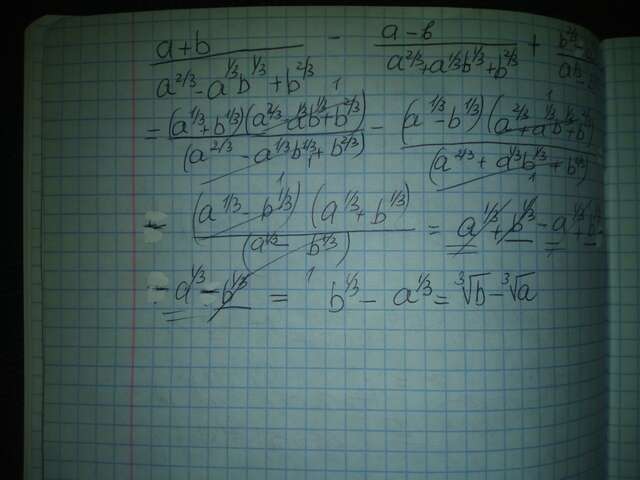 (a+b)/(a^{2/3} - a^{1/3}b^{1/3} + b^{2/3}) - (a-b)/(a^{2/3} + a^{1/3}b^{1/3} + b^{2/3}) +
= (a^{1/3} + b^{1/3})(a^{2/3} a^{1/3}b^{1/3} + b^{2/3})/(a^{2/3} - a^{1/3}b^{1/3} + b^{2/3}) - (a^{1/3} - b^{1/3})(a^{2/3} + a^{1/3}b^{1/3} + b^{2/3})/(a^{2/3} + a^{1/3}b^{1/3} + b^{2/3})
- (a^{1/3} - b^{1/3})(a^{1/3} + b^{1/3})/(a^{1/3} - b^{1/3}) = a^{1/3} + b^{1/3} - a^{1/3} + b
- a^{1/3} - b^{1/3} = b^{1/3} - a^{1/3} = ∛b - ∛a